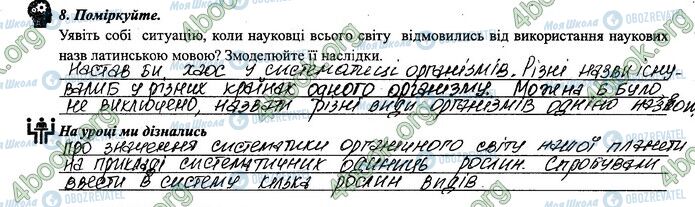 8. Поміркуйте.
Уявіть собі ситуацію, коли науковці всього світу відмовились від використання наукових
назв латинською мовою? Змоделюйте її наслідки.
Настав би, хаос у систематиці організмів. Різні назви існу-
валиб у різних країнах одного організму. Можна б було
не виключено, назвати різні види організмів однією назвою
На уроці ми дізнались
про значення систематики органічного світу нашої планети
на прикладі систематичних одиниць рослин. Спробували
ввести в систему кілька рослин видів.